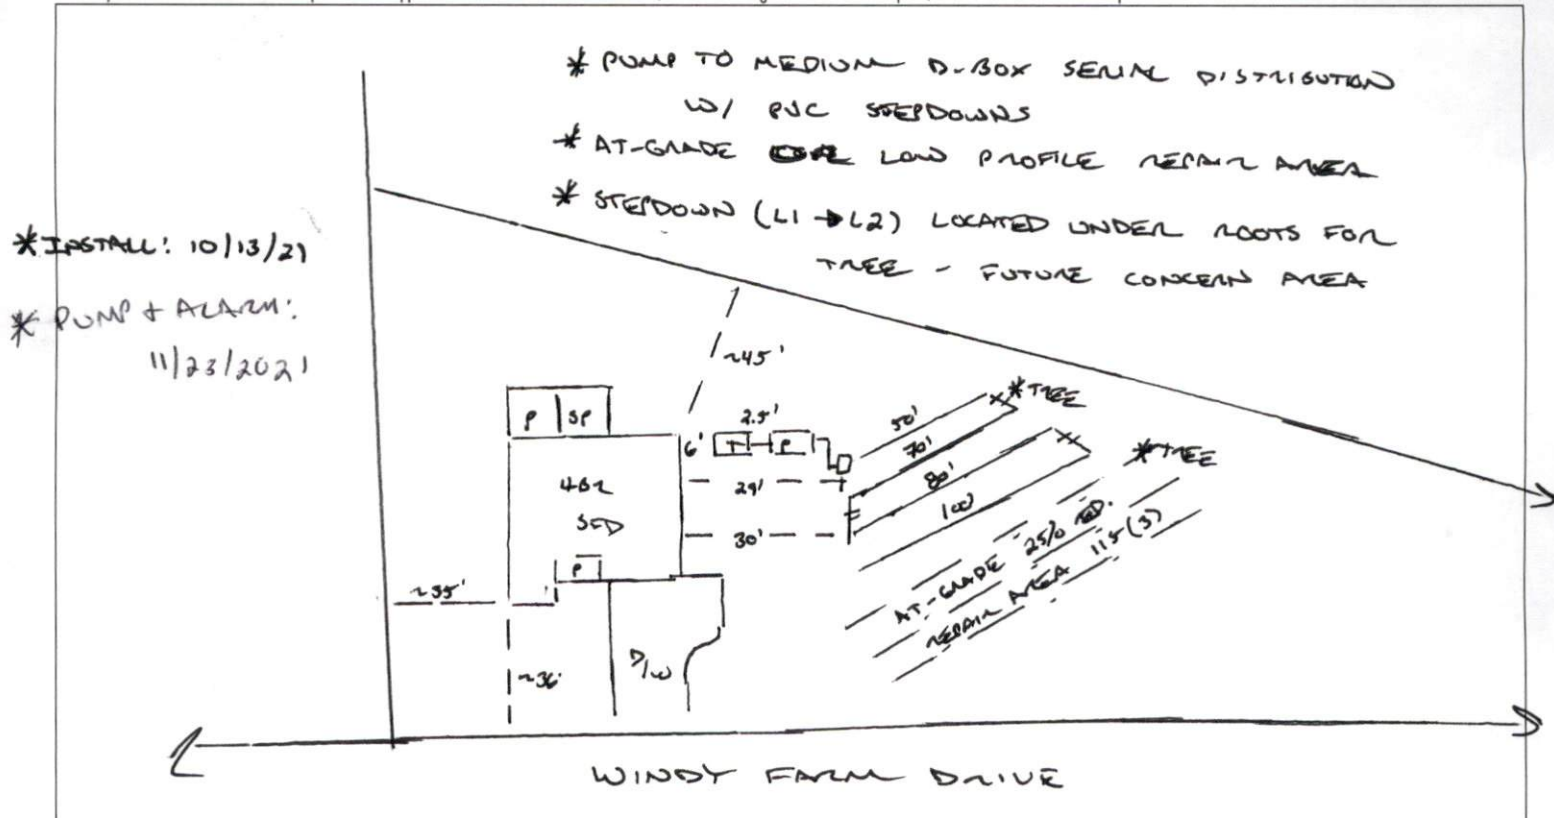 * PUMP TO MEDIUM D-BOX SERIAL DISTRIBUTION
W/ PVC STEPDOWNS
* AT-GRADE OR LOW PROFILE REPAIR AREA
* STEPDOWN (L1 → L2) LOCATED UNDER ROOTS FOR
TREE - FUTURE CONCERN AREA
* INSTALL: 10/13/21
* PUMP + ALARM:
11/23/2021
~45'
P SP
2.5'
6' T P
50'
* TREE
70'
80'
100'
* TREE
4BR
SFD
29'
30'
P
~35'
~36'
D/W
AT-GRADE 25% RED.
REPAIR AREA 115 (3)
WINDY FARM DRIVE